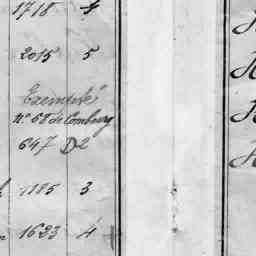 1718 4
2015 5
Exempté
n° 68 de Combourg
647 D2
1185 3
1623 4